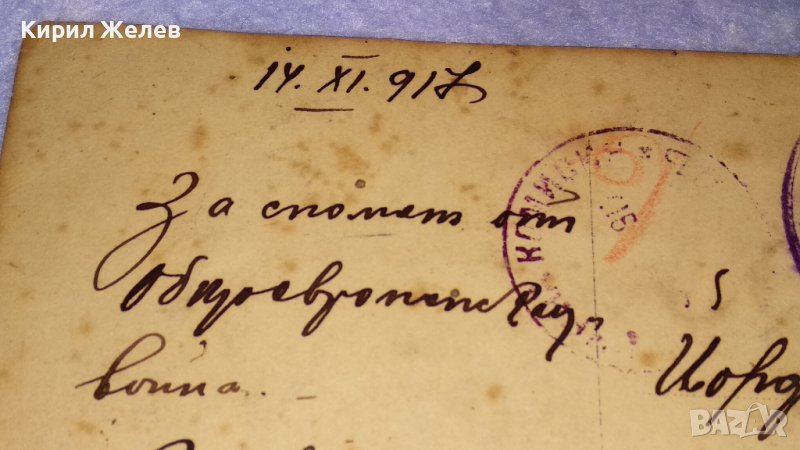 Кирил Желев
14. XI. 917
За спомен от
Общоевропейската
война.
Йорд
КОМИСИЯ
BAZAR